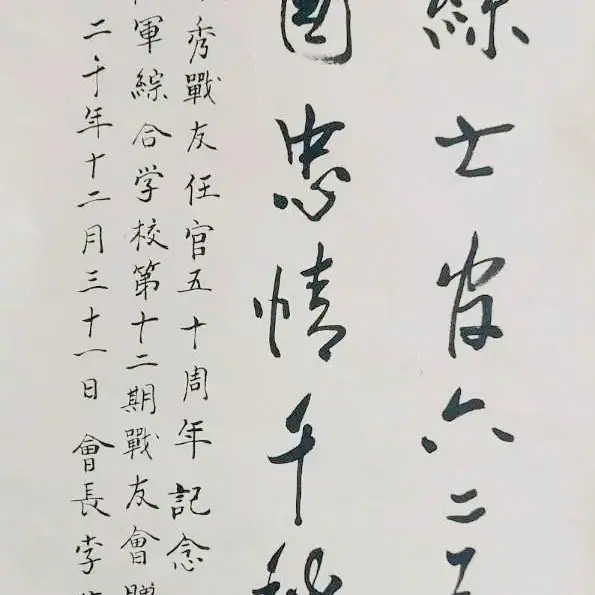 綜士官六二五
國忠情千秋
秀戰友任官五十周年記念
軍綜合学校第十二期戰友會贈
二千年十二月三十一日 會長李